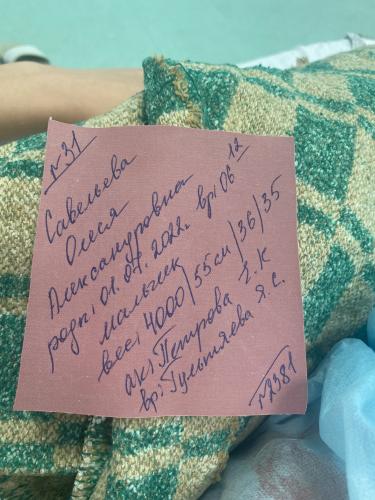 №31
Савельева
Олеся
Александровна
родп: 01.07.2022г. вр: 06 12
мальчик
вес: 4000/55см/36/35
ак: Петрова Г.К
вр: Гультяева Я.С.
№2381